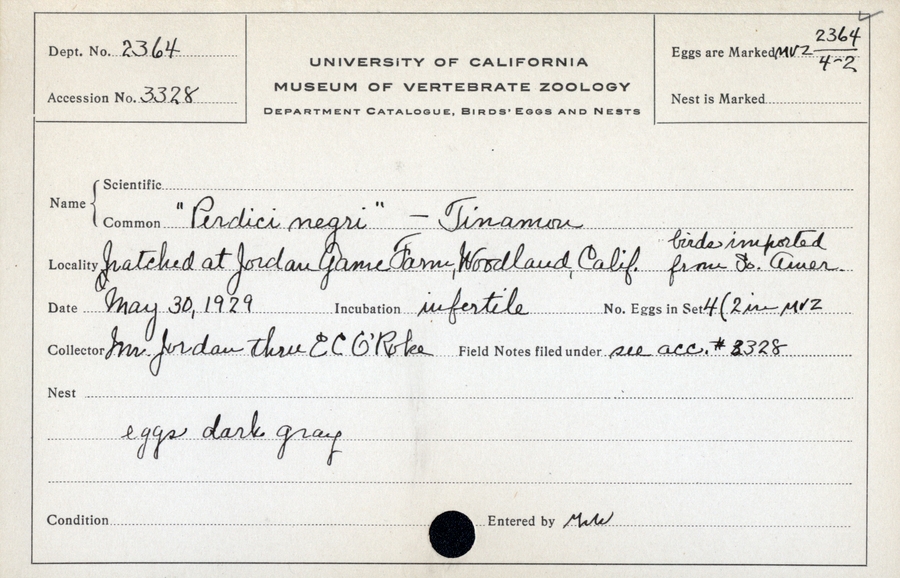 Dept. No. 2364
Accession No. 3328
UNIVERSITY OF CALIFORNIA
MUSEUM OF VERTEBRATE ZOOLOGY
DEPARTMENT CATALOGUE, BIRDS' EGGS AND NESTS
Eggs are Marked MVZ 2364
4-2
Nest is Marked
Name
Scientific
Common "Perdici negri" – Tinamou
birds imported
Locality hatched at Jordan Game Farm, Woodland, Calif. from So. Amer.
Date May 30, 1929 Incubation infertile No. Eggs in Set 4 (2 in MVZ
Collector Mr. Jordan thru E C O'Roke Field Notes filed under see acc. # 3328
Nest
eggs dark gray
Condition
Entered by